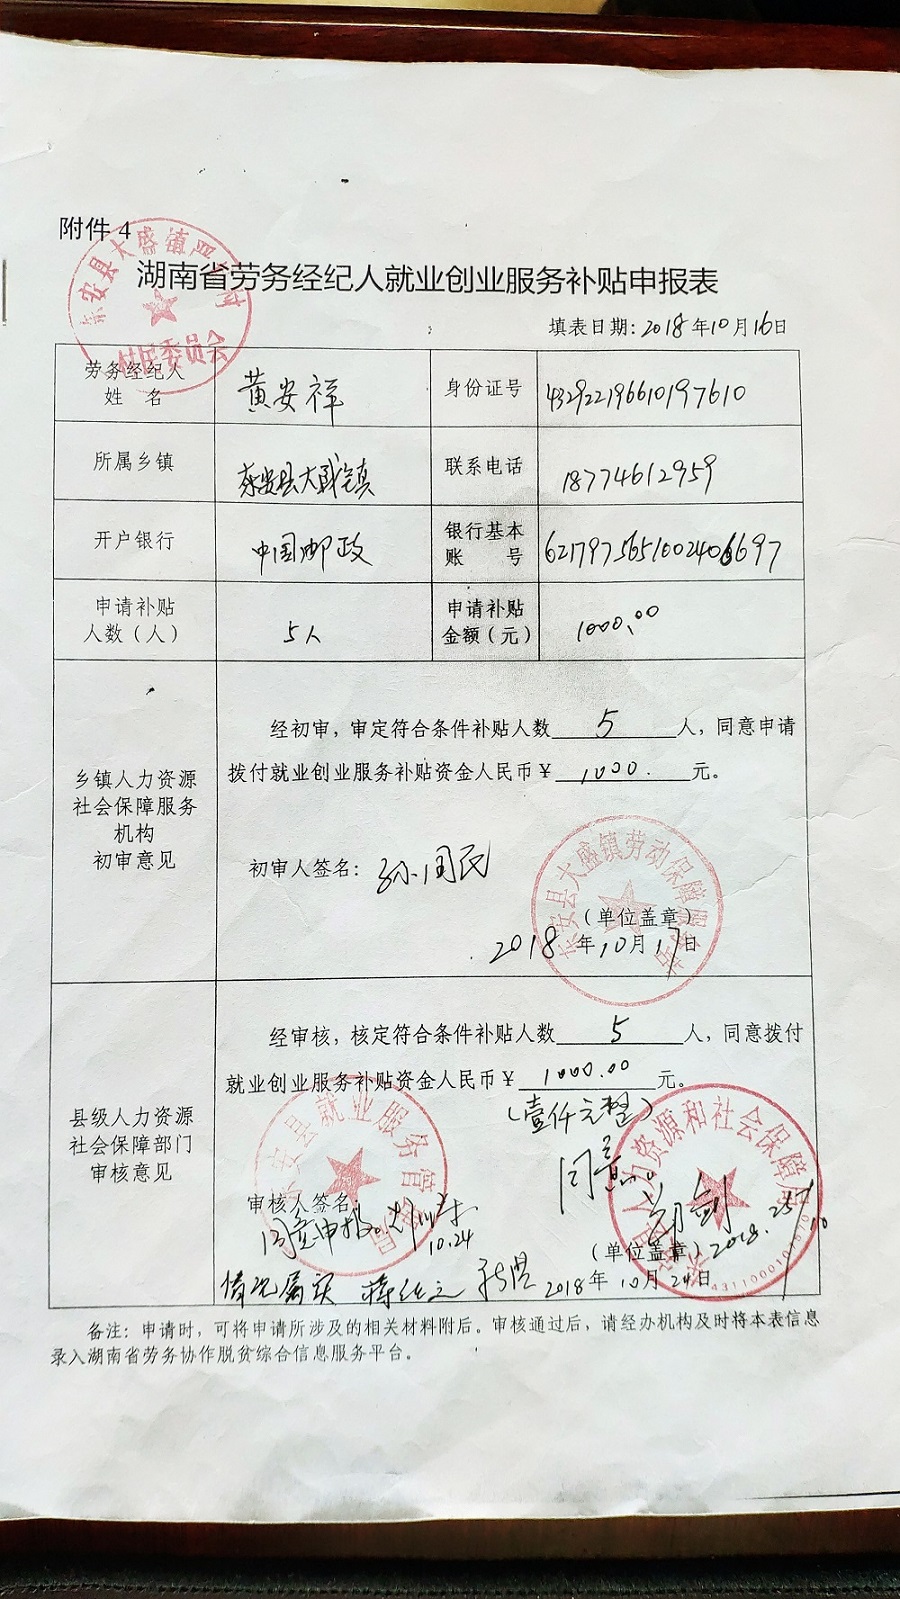 附件 4
湖南省劳务经纪人就业创业服务补贴申报表
填表日期：2018年10月16日
劳务经纪人
姓 名
黄安祥
身份证号
432922196610197610
所属乡镇
东安县大盛镇
联系电话
18774612959
开户银行
中国邮政
银行基本
账 号
6217975651002406697
申请补贴
人数（人）
5人
申请补贴
金额（元）
1000.00
乡镇人力资源
社会保障服务
机构
初审意见
经初审，审定符合条件补贴人数 5 人，同意申请
拨付就业创业服务补贴资金人民币￥ 1000. 元。
初审人签名：
东安县大盛镇劳动保障服务站
（单位盖章）
2018年10月17日
县级人力资源
社会保障部门
审核意见
经审核，核定符合条件补贴人数 5 人，同意拨付
就业创业服务补贴资金人民币￥ 1000.00 元。
（壹仟元整）
同意
审核人签名
同意申报
10.24
（单位盖章）
情况属实
2018年10月24日
村民委员会
备注：申请时，可将申请所涉及的相关材料附后。审核通过后，请经办机构及时将本表信息
录入湖南省劳务协作脱贫综合信息服务平台。